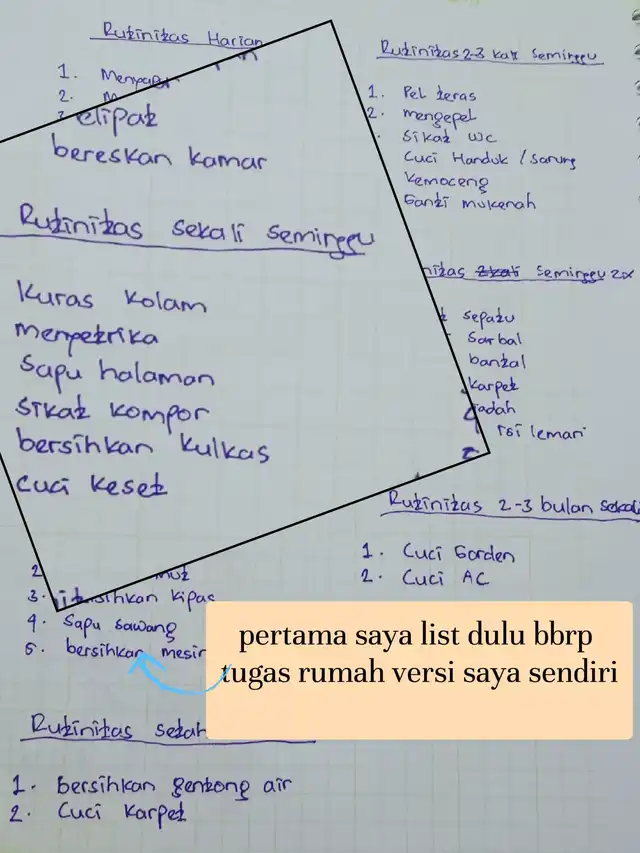 Rutinitas Harian
1. Menyapu
2. M
3
elipat
bereskan kamar
Rutinitas sekali seminggu
Kuras kolam
menyetrika
Sapu halaman
Sikat kompor
bersihkan kulkas
Cuci keset
2
3. bersihkan kipas
4. Sapu sawang
5. bersihkan mesin
Rutinitas setah
1. Bersihkan gentong air
2. Cuci karpet
Rutinitas 2-3 kali seminggu
1. Pel teras
2. mengepel
Sikat WC
Cuci Handuk / Sarung
Kemoceng
Ganti mukenah
nitas seminggu 2x
sepatu
Sarbal
bantal
karpet
Isi lemari
Rutinitas 2-3 bulan sekali
1. Cuci Gorden
2. Cuci AC
pertama saya list dulu bbrp
tugas rumah versi saya sendiri